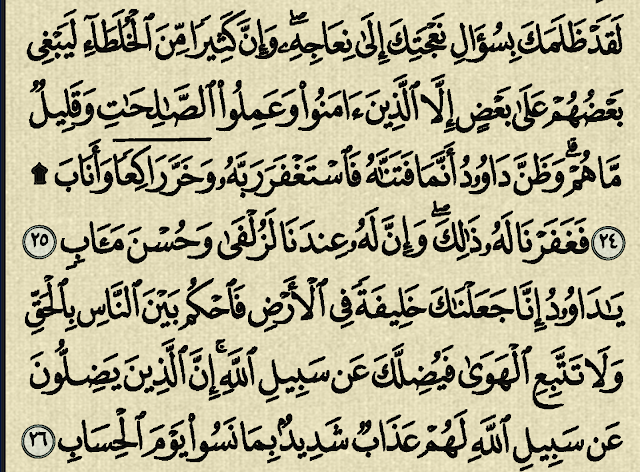 لَقَدْ ظَلَمَكَ بِسُؤَالِ نَعْجَتِكَ إِلَىٰ نِعَاجِهِۦۖ وَإِنَّ كَثِيرًا مِّنَ ٱلْخُلَطَآءِ لَيَبْغِى
بَعْضُهُمْ عَلَىٰ بَعْضٍ إِلَّا ٱلَّذِينَ ءَامَنُوا۟ وَعَمِلُوا۟ ٱلصَّـٰلِحَـٰتِ وَقَلِيلٌ
مَّا هُمْۗ وَظَنَّ دَاوُۥدُ أَنَّمَا فَتَنَّـٰهُ فَٱسْتَغْفَرَ رَبَّهُۥ وَخَرَّ رَاكِعًا وَأَنَابَ ۩
٢٤ فَغَفَرْنَا لَهُۥ ذَٰلِكَۖ وَإِنَّ لَهُۥ عِندَنَا لَزُلْفَىٰ وَحُسْنَ مَـَٔابٍ ٢٥
يَـٰدَاوُۥدُ إِنَّا جَعَلْنَـٰكَ خَلِيفَةً فِى ٱلْأَرْضِ فَٱحْكُم بَيْنَ ٱلنَّاسِ بِٱلْحَقِّ
وَلَا تَتَّبِعِ ٱلْهَوَىٰ فَيُضِلَّكَ عَن سَبِيلِ ٱللَّهِۚ إِنَّ ٱلَّذِينَ يَضِلُّونَ
عَن سَبِيلِ ٱللَّهِ لَهُمْ عَذَابٌ شَدِيدٌۢ بِمَا نَسُوا۟ يَوْمَ ٱلْحِسَابِ ٢٦